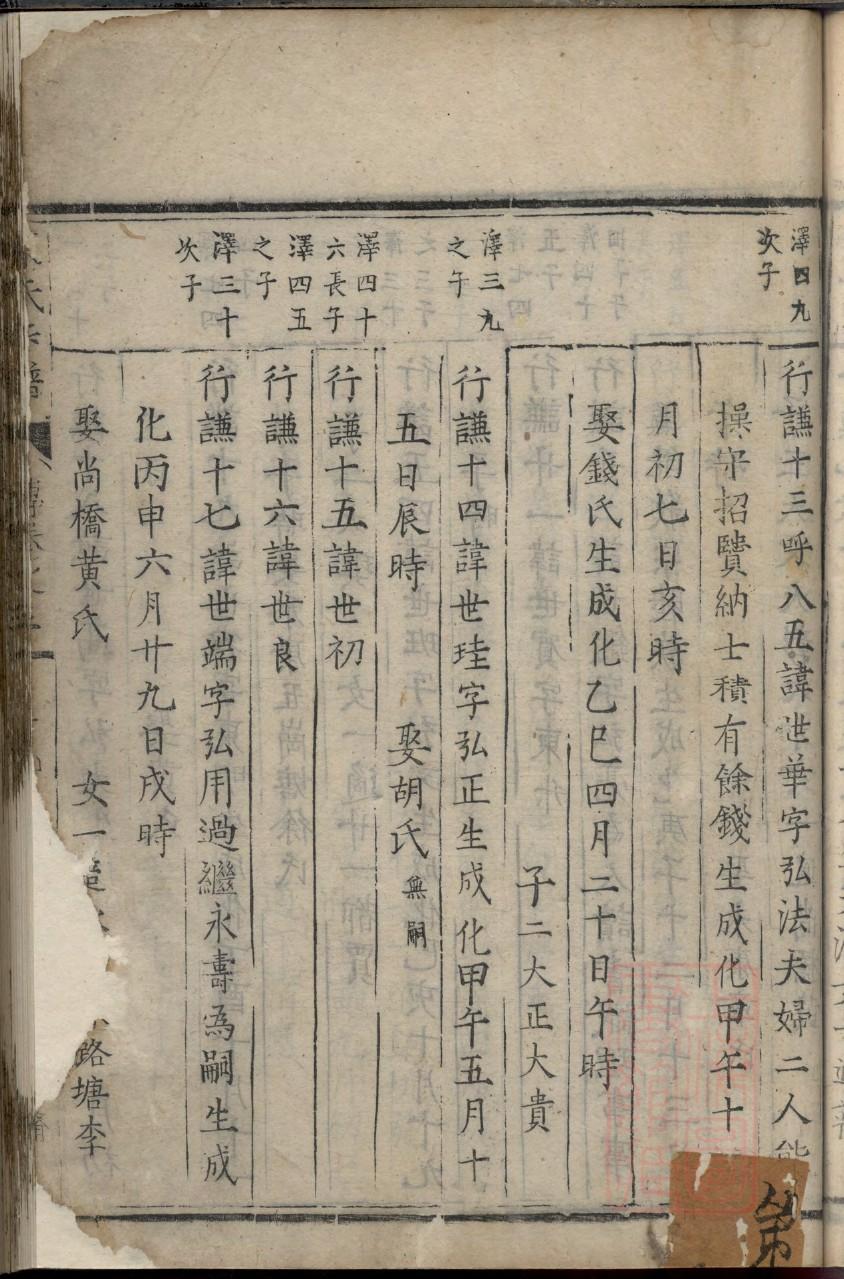 澤四九
次子
行謙十三呼八五諱世華字弘法夫婦二人能
操守招賢納士積有餘錢生成化甲午十
月初七日亥時
娶錢氏生成化乙巳四月二十日午時
子二大正大貴
澤三九
之子
行謙十四諱世珪字弘正生成化甲午五月十
五日辰時 娶胡氏 無嗣
澤四十
六長子
行謙十五諱世初
澤四五
之子
行謙十六諱世良
澤三十
次子
行謙十七諱世端字弘用過繼永壽為嗣生成
化丙申六月廿九日戌時
娶尚橋黄氏 女一 路塘李
第